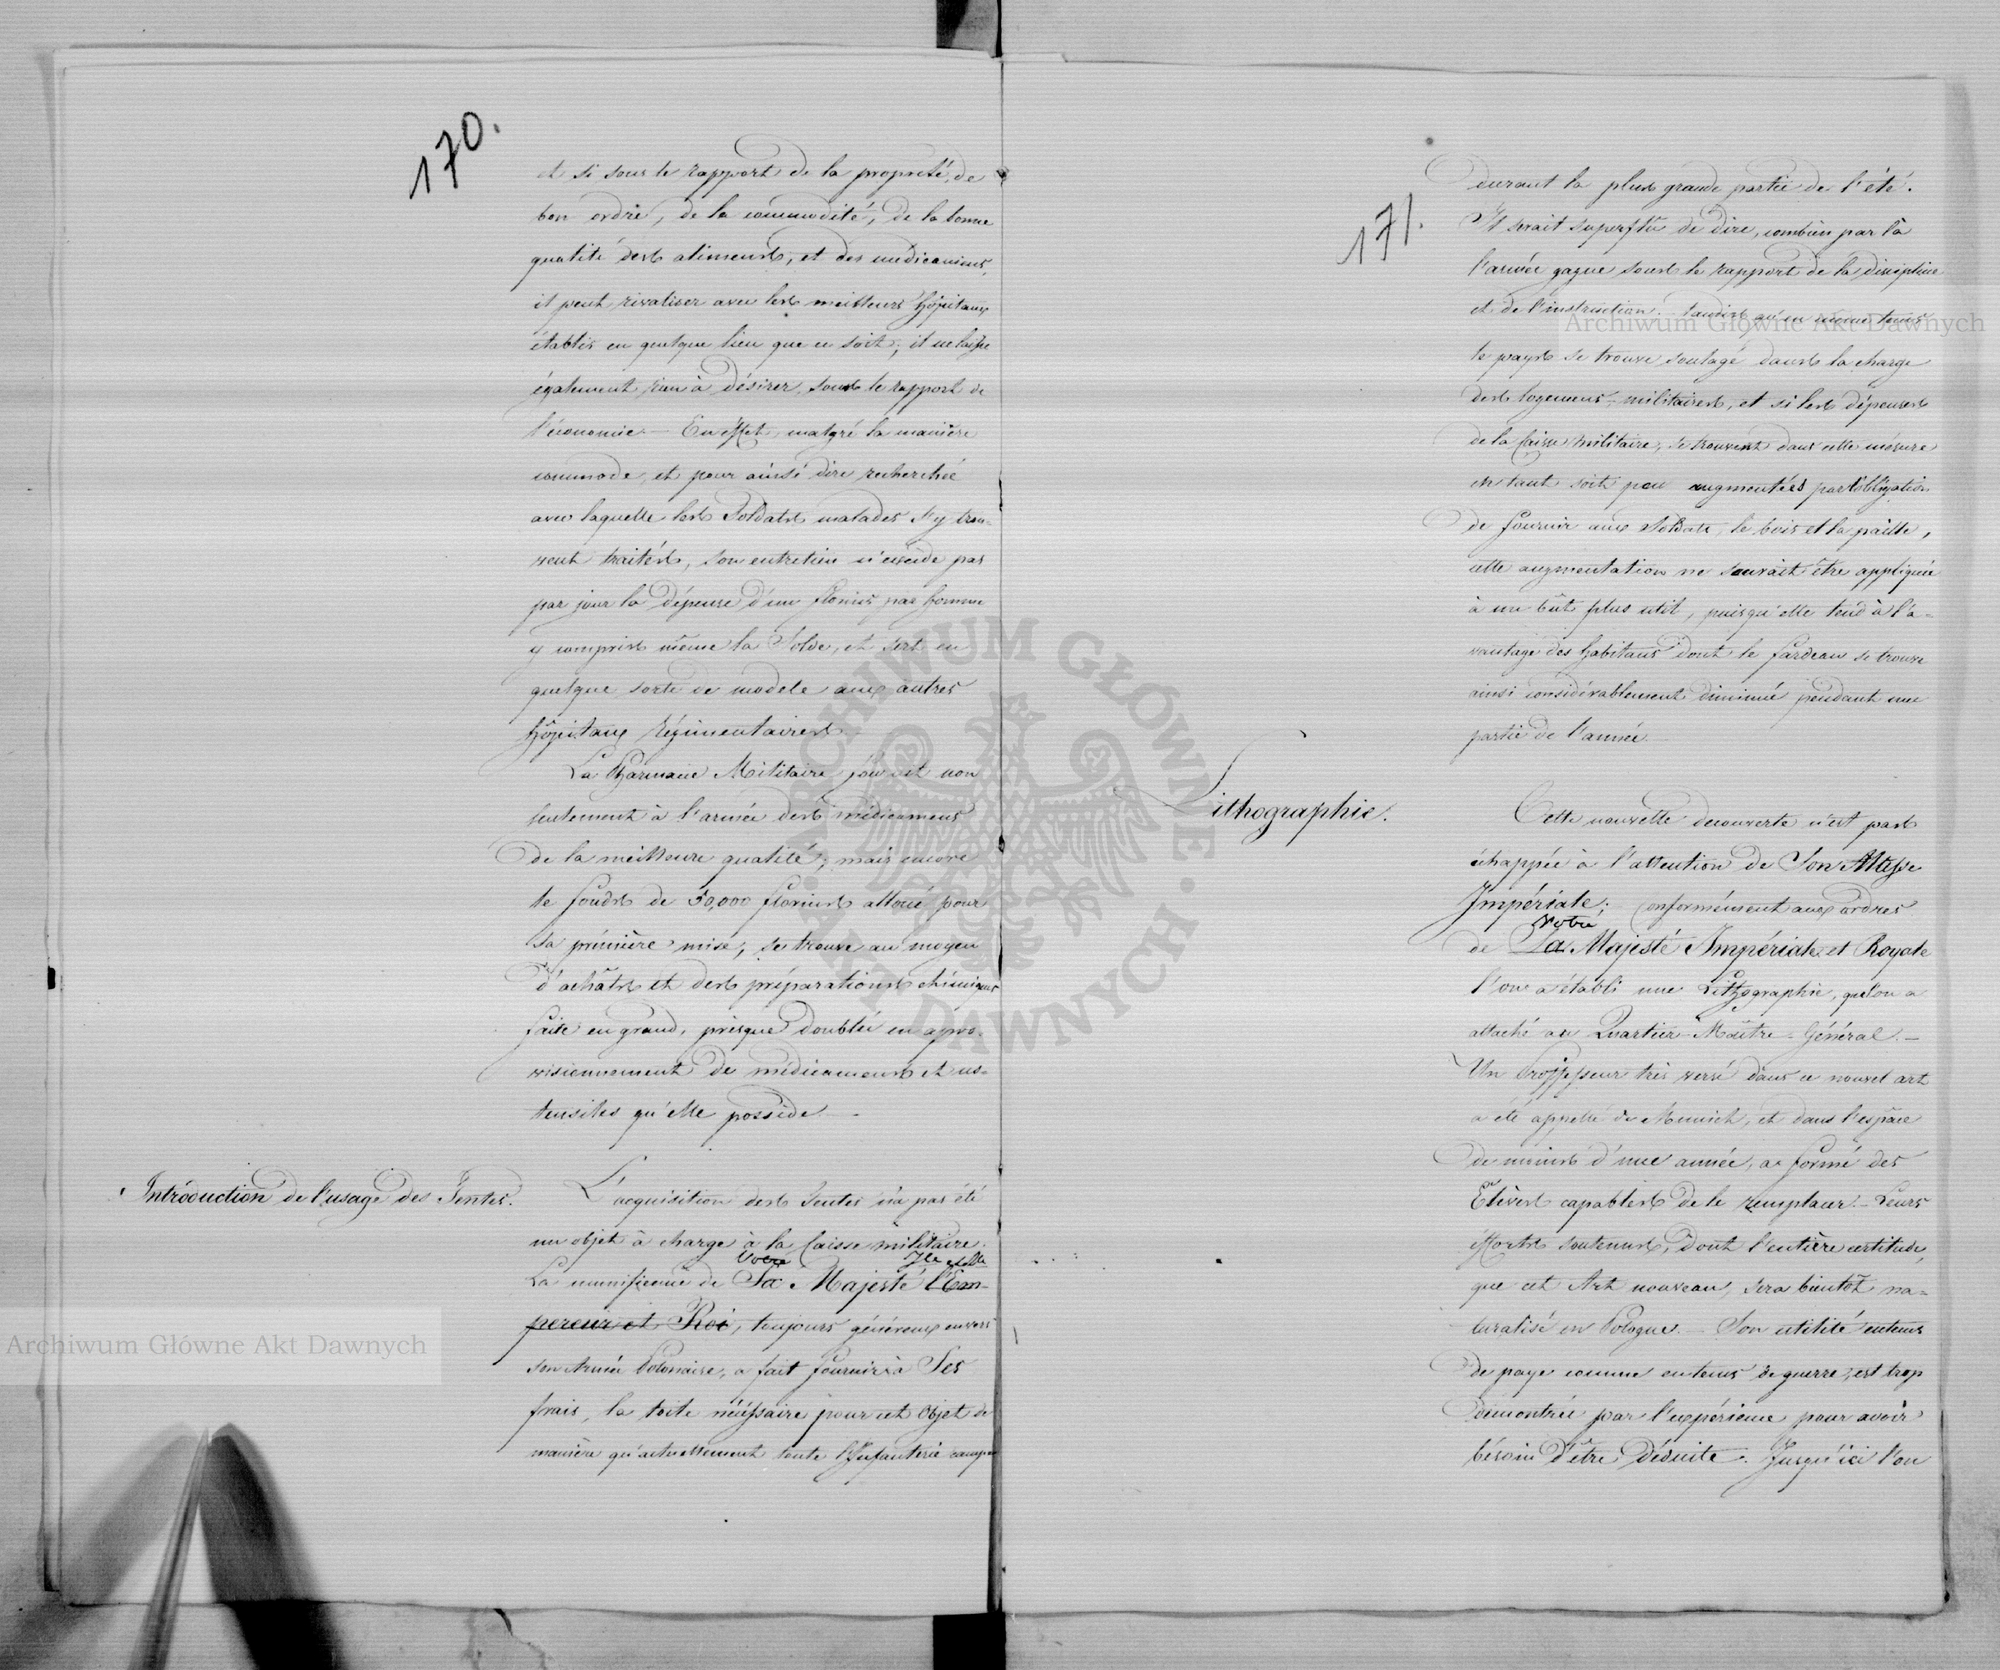 170.
et si sous le rapport de la propreté, de
bon ordre, de la commodité, de la bonne
qualité des alimens, et des médicamens,
il peut rivaliser avec les meilleurs hôpitaux
établis en quelque lieu que ce soit; il ne laisse
également rien à désirer, sous le rapport de
l'économie. — En effet, malgré la manière
commode, et pour ainsi dire recherchée
avec laquelle les Soldats malades s'y trou-
vent traités, son entretien n'excède pas
par jour la dépense d'un florin par homme
y compris même la Solde, et sert en
quelque sorte de modele aux autres
hôpitaux régimentaires. —
La Pharmacie Militaire fournit non
seulement à l'armée des médicamens
de la meilleure qualité; mais encore
le fonds de 50,000 florins alloué pour
sa prémière mise, se trouve au moyen
d'achâts et des préparations chimiques
faite en grand, presque doublé en apro-
visionnement de médicamens et us-
tensiles qu'elle possède. —
Introduction de l'usage des Tentes.
L'acquisition des tentes n'a pas été
un objet à charge à la Caisse militaire.
Votre Ile elle
La munificence de Sa Majesté l'Em-
pereur et Roi, toujours généreux envers
son Armée Polonaise, a fait fournir à Ses
frais, la toile nécéssaire pour cet objet de
manière qu'actuellement toute l'Infanterie campe
171.
durant la plus grande partie de l'été.
Il serait superflû de dire, combien par là
l'armée gagne sous le rapport de la discipline
et de l'instruction: tandis qu'en même tems
le pays se trouve soulagé dans la charge
des logemens militaires, et si les dépenses
de la Caisse militaire, se trouvent dans cette mésure
en tant soit peu augmentées par l'obligation
de fournir aux Soldats, le bois et la paille,
cette augmentation ne sauroit être appliquée
à un bût plus util, puisqu'elle tend à l'a-
vantage des habitans dont le fardeau se trouve
ainsi considérablement diminué pendant une
partie de l'année. —
Lithographie.
Cette nouvelle decouverte n'est pas
échappée à l'attention de Son Altesse
Impériale; Conformément aux ordres
Votre
de Sa Majesté Impériale et Royale
l'on a établi une Lithographie, qu'on a
attaché au Quartier-Maître-Général. —
Un Proffesseur très versé dans ce nouvel art
a été appellé de Munich, et dans l'espace
de moins d'une année, a formé des
Élèves capables de le remplacer. — Leurs
éfforts soutenus, dont l'entière certitude,
que cet Art nouveau, sera bientôt na-
turalisé en Pologne. — Son utilité entems
de paye comme entems de guerre, est trop
démontrée par l'expérience pour avoir
bésoin d'être déduite. Jusqu'ici l'on
Archiwum Główne Akt Dawnych
Archiwum Główne Akt Dawnych
ARCHIWUM GŁÓWNE · AKT DAWNYCH ·